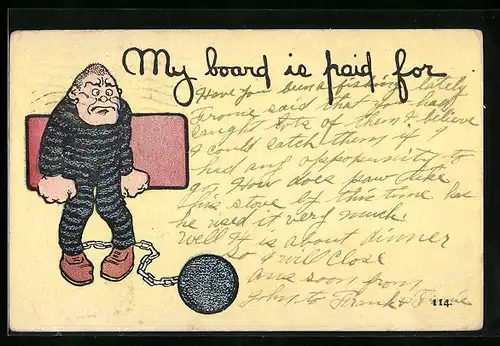 My board is paid for
Have you been a fishing lately
Jrome said that you had
caught lots of them I believe
I could catch them if I
had any oppopunity to
How does paw like
his stove by this time has
he used it very much
Well It is about dinner
So I will close
Ans soon from
John to Frank &
114.